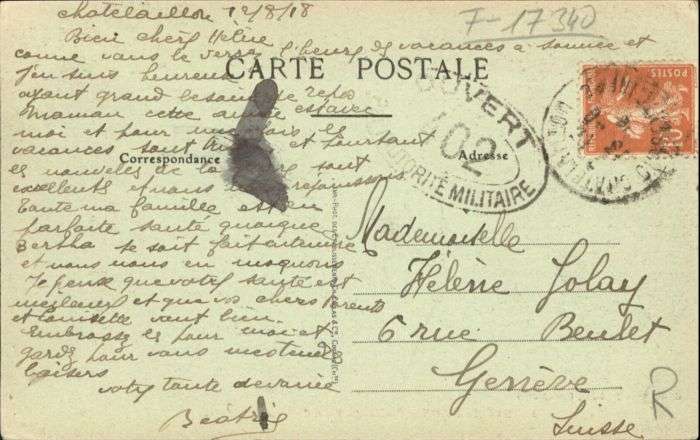 Chatelaillon 12/8/18
F-17340
Bien chère Hélène
comme vous le verrez l'heure des vacances a sonnée et
j'en suis heureuse
CARTE POSTALE
ayant grand besoin de repos
Maman cette année est avec
moi et pour une fois les
vacances sont pourtant
Correspondance
Adresse
les nouvelles de la guerre sont
excellentes et nous réjouissons
Toute ma famille est en
parfaite santé quoique
Bertha se soit fait
et nous nous en moquons
Je pense que votre santé est
meilleure et que vos chers parents
et Louisette vont bien.
Embrassez les pour moi et
gardez pour vous
baisers
votre tante
Béatrix
OUVERT
402
AUTORITÉ MILITAIRE
POSTES
10
Mademoiselle
Hélène Golay
6 rue Beulet
Genève
Suisse
R